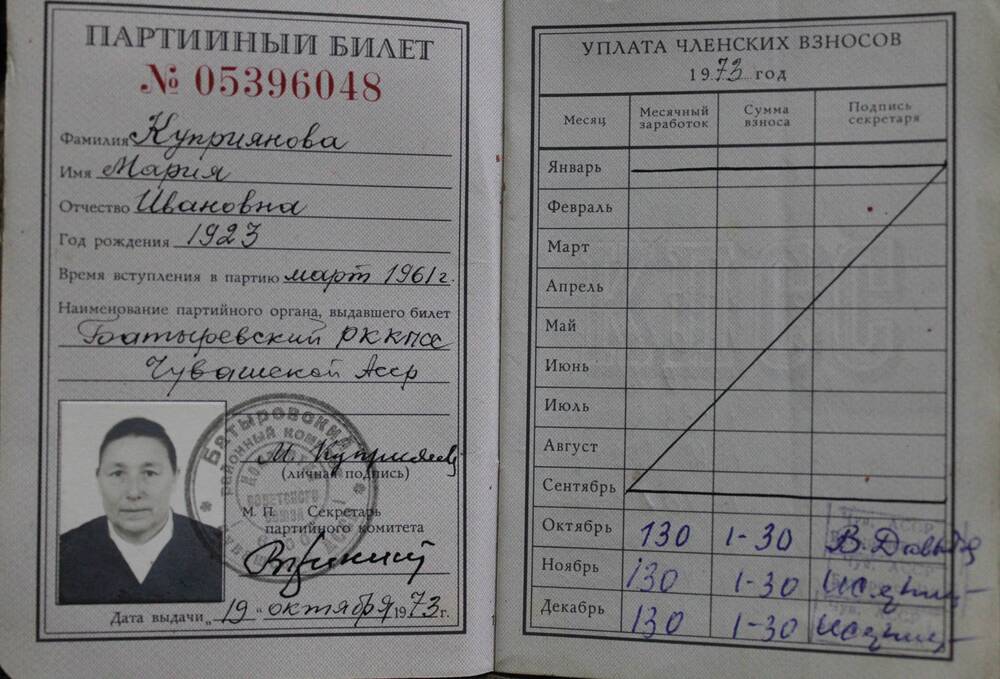 ПАРТИЙНЫЙ БИЛЕТ
№ 05396048
Фамилия Куприянова
Имя Мария
Отчество Ивановна
Год рождения 1923
Время вступления в партию март 1961 г.
Наименование партийного органа, выдавшего билет
Батыревский РККПСС
Чувашской Асср
М. Куприянов
(личная подпись)
М. П. Секретарь
партийного комитета
Дата выдачи „19" октября 1973 г.
УПЛАТА ЧЛЕНСКИХ ВЗНОСОВ
1973 год
Месяц Месячный заработок Сумма взноса Подпись секретаря
Январь
Февраль
Март
Апрель
Май
Июнь
Июль
Август
Сентябрь
Октябрь 130 1-30
Ноябрь 130 1-30
Декабрь 130 1-30